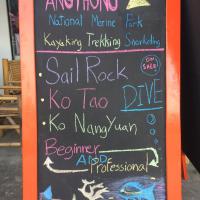 ANGTHONG
National Marine Park
Kayaking Trekking Snorkeling
• Sail Rock
ON SALE!
• Ko Tao
DIVE
• Ko NangYuan
Beginner
AND
Professional